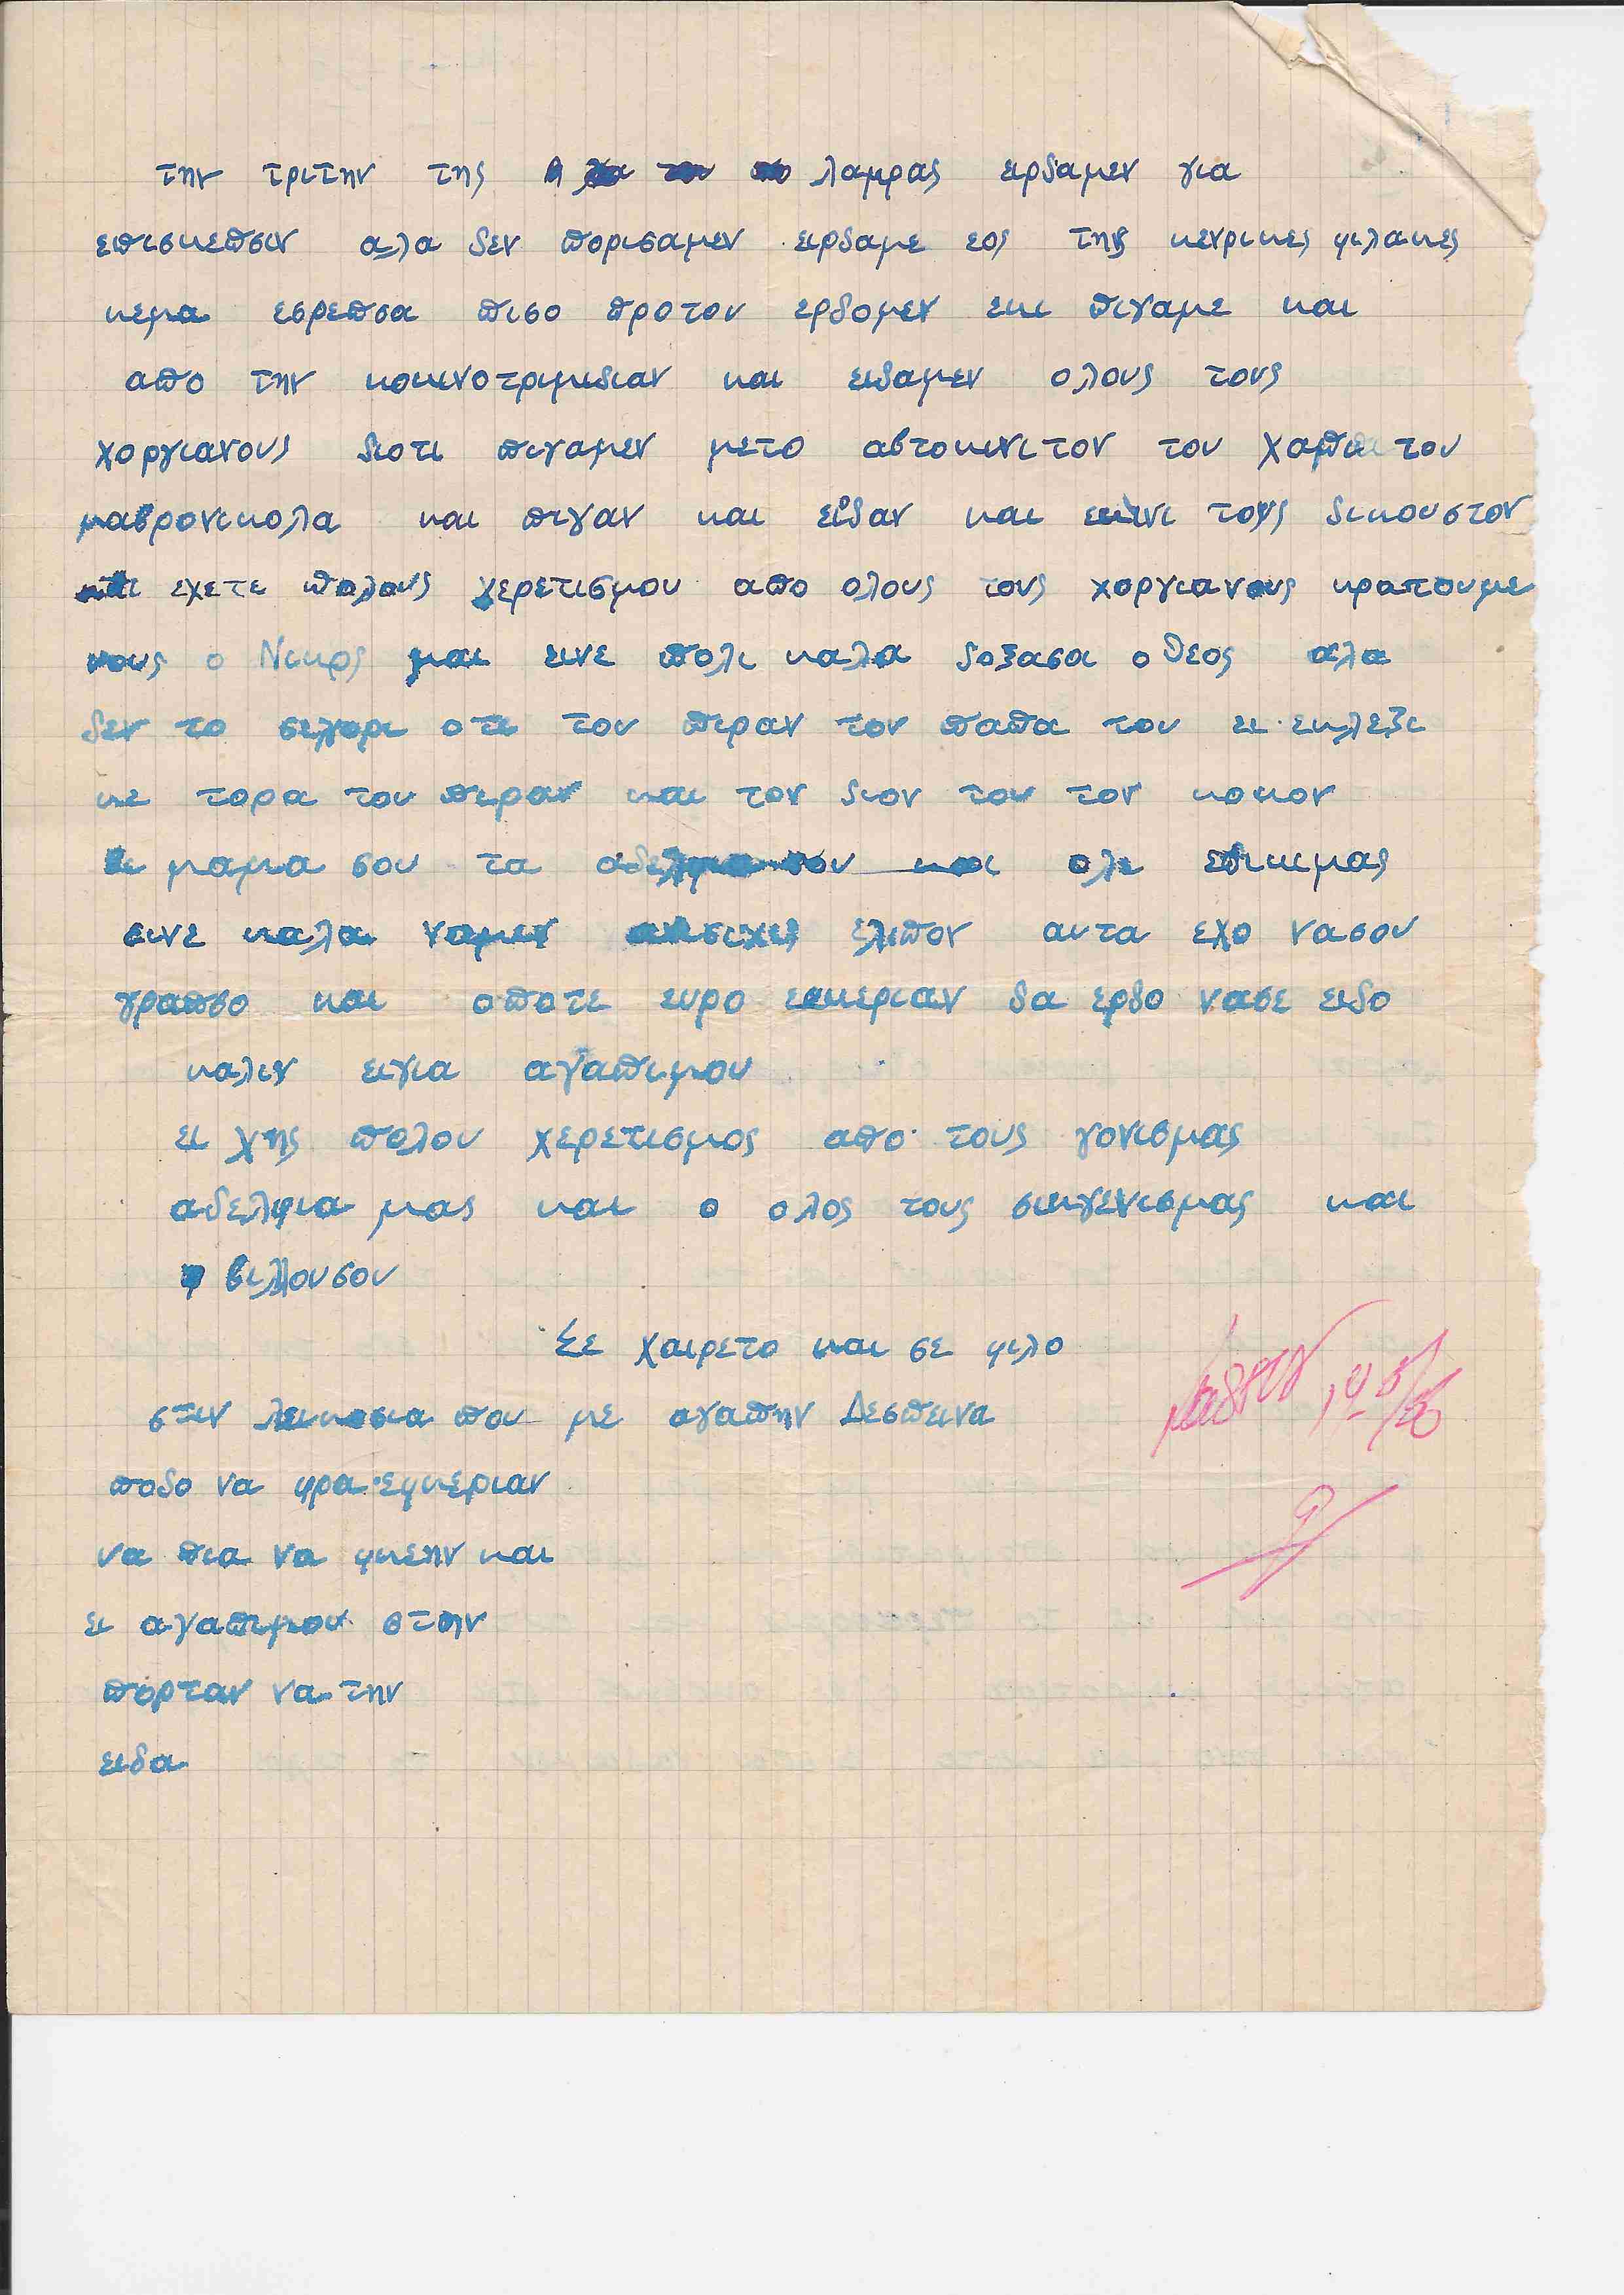 την τριτην της λαμρας ειρδαμεν για
επισκεπσιν αλα δεν πορισαμεν ειρδαμε εος της κενρικες φιλακες
κεμα εσρεπσα πισο προτον ερδομεν εκι πιγαμε και
απο την κοκινοτριμιδιαν και ειδαμεν ολους τους
χοργιανους διοτι πιγαμεν μετο αβτοκινιτον του χαμπι του
μαβρονικολα και πιγαν και ειδαν και εκινι τους δικουστον
εχετε πολους χερετισμου απο ολους τους χοργιανους κρατουμε
νους ο Νικος μας εινε πολι καλα δοξασα ο θεος αλα
δεν το οτι τον πιραν τον παπα του ει εκλεξι
κε τορα του πιραν και τον διον του τον κοκον
ει μαμα σου τα αδελφια σου και ολι εδικιμας
εινε καλα ναμεν ανισιχις ελιπον αυτα εχο νασου
γραπσο και οποτε ευρο εκεριαν δα ερδο νασε ειδο
καλιν ειγια αγαπιμου
ει χης πολου χερετισμος απο τους γονισμας
αδελφια μας και ο ολος τους σιγενισμας και
βιλλουσου
Σε χαιρετο και σε φιλο
στιν λεικοσια που με αγαπην Δεσπεινα
ποδο να φρα εφκεριαν
να πια να φκεην και
ει αγαπιμου στην
πορταν να την
ειδα